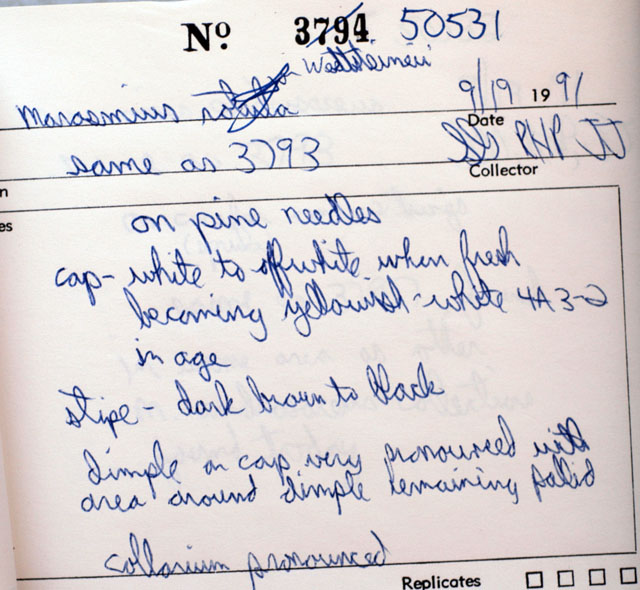 Nº 3794 50531
Marasmius rotula
9/19 19 91
Date
same as 3793
PHP JJ
Collector
on pine needles
cap - white to offwhite when fresh
becoming yellowish-white 4A3-2
in age
stipe - dark brown to black
dimple on cap very pronounced with
area around dimple remaining pallid
collarium pronounced
Replicates